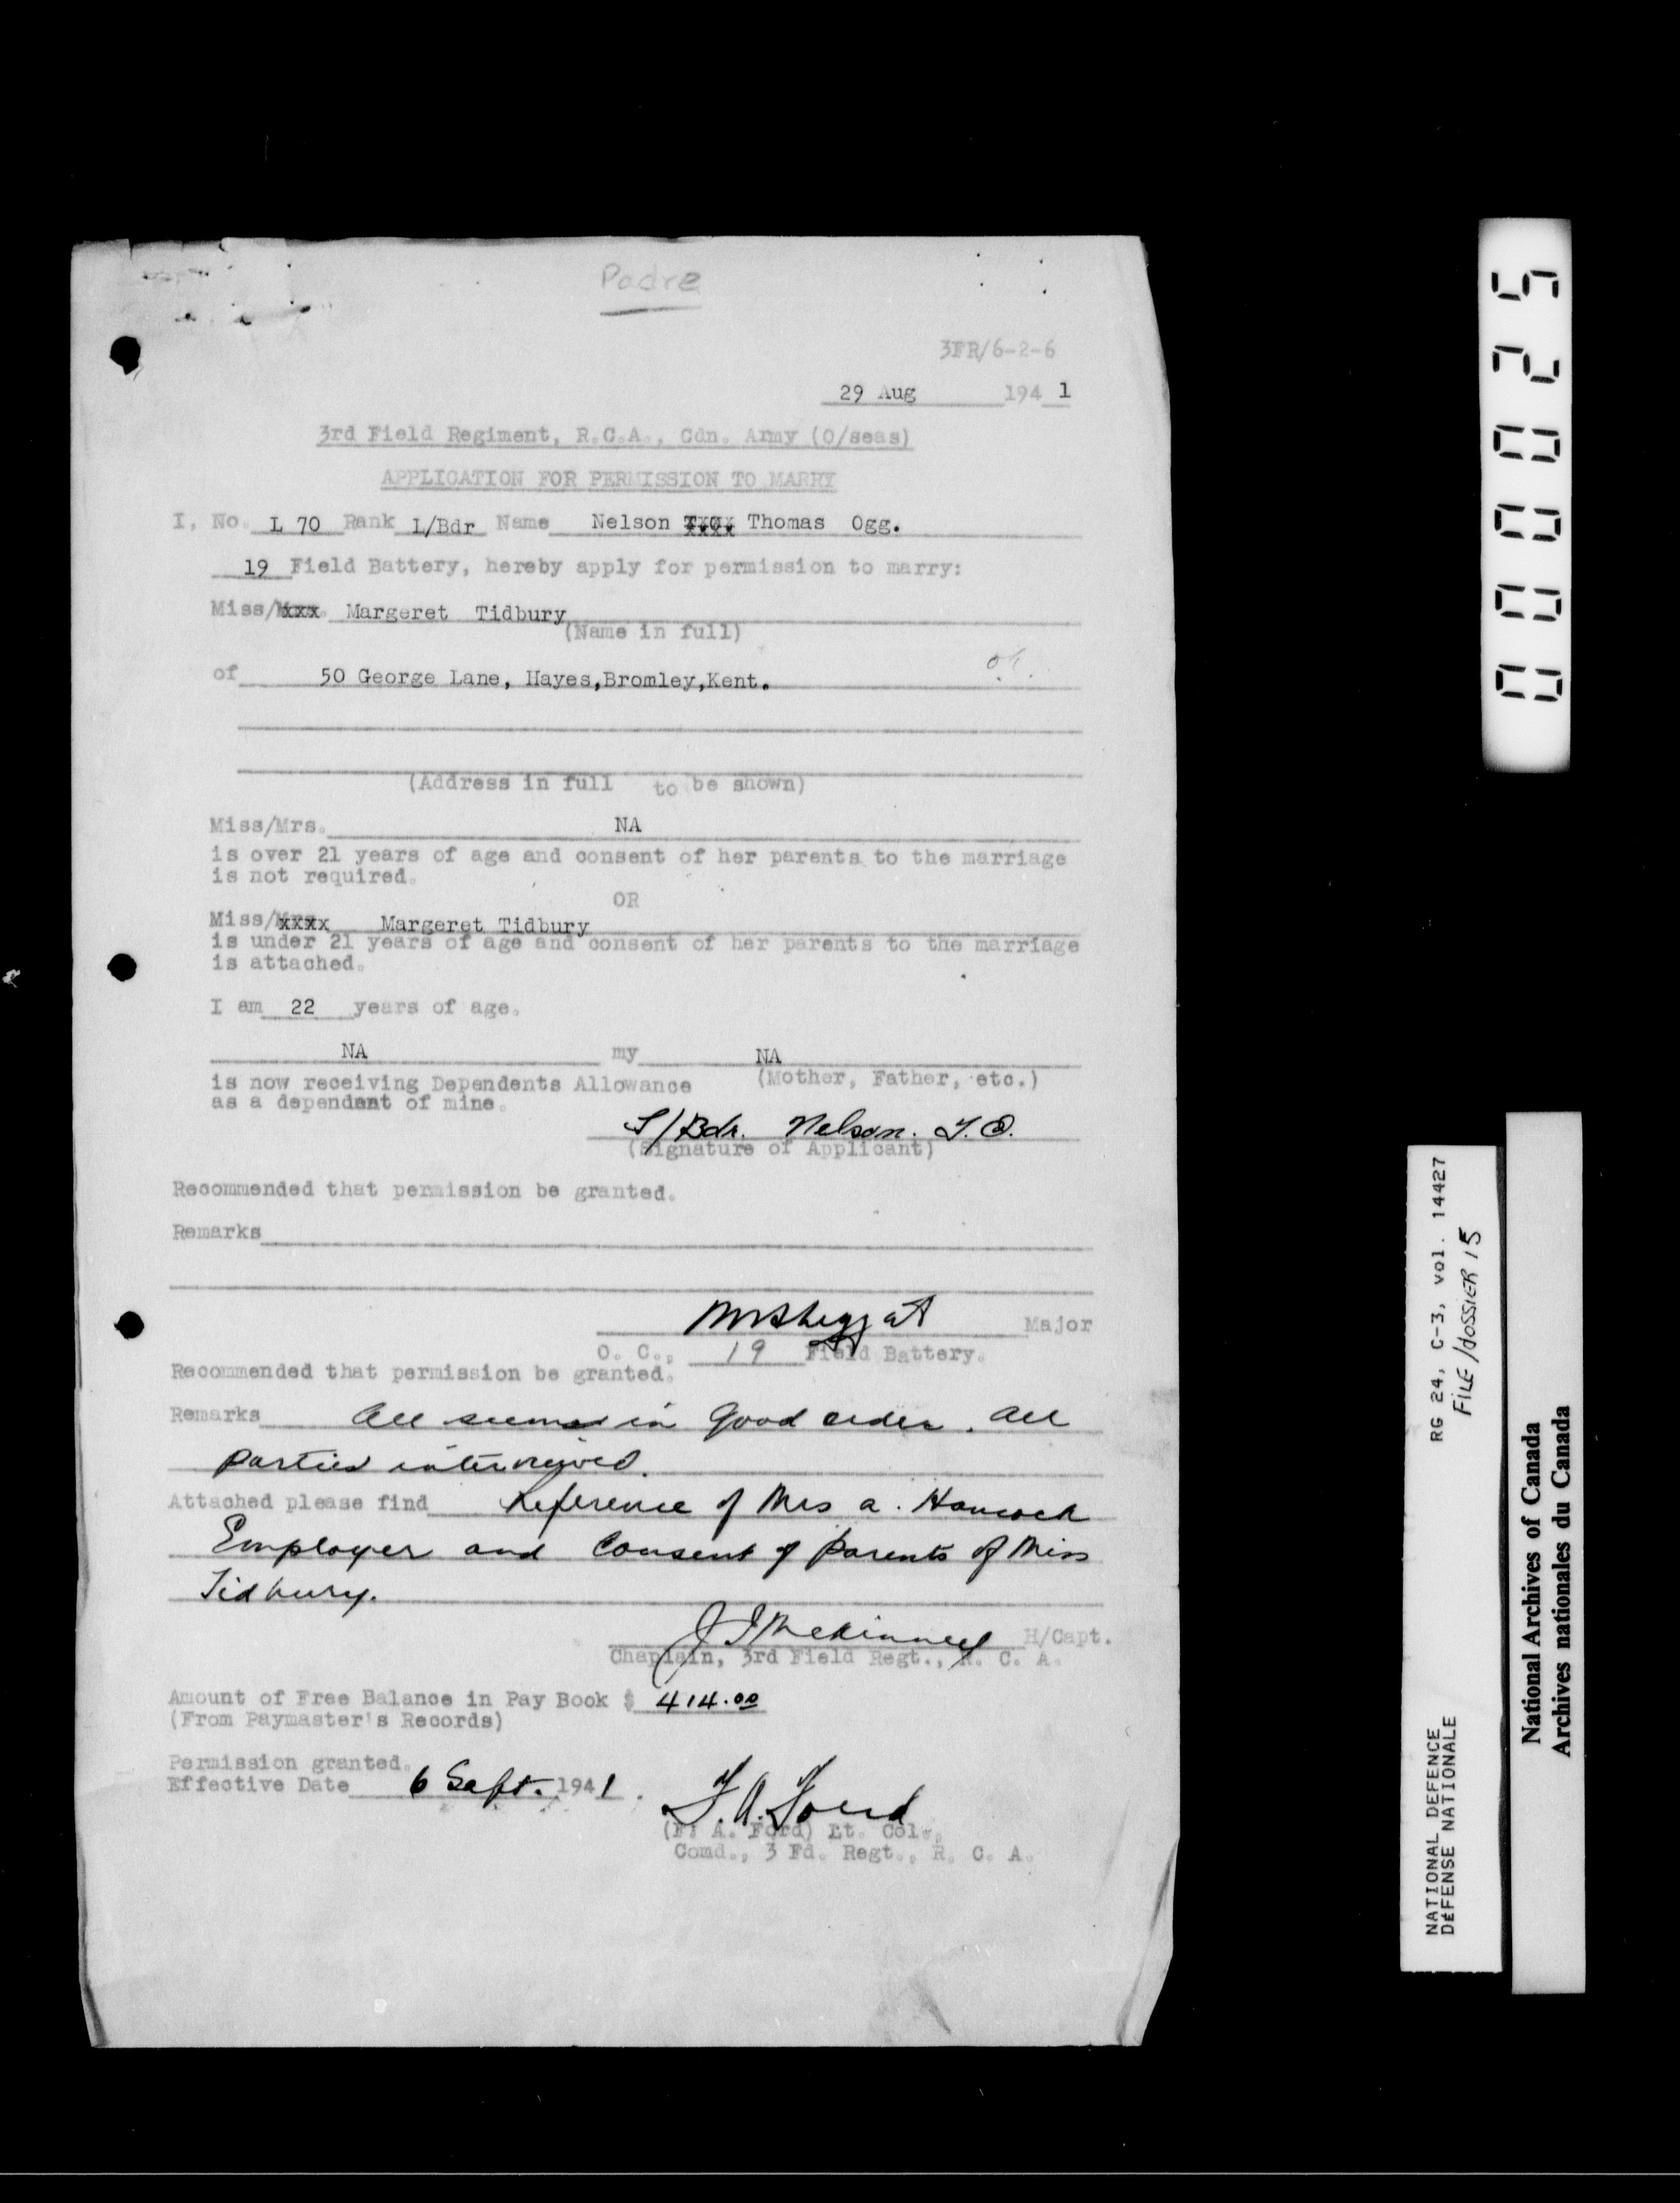 Padre
3FR/6-2-6
29 Aug 194 1
3rd Field Regiment, R.C.A., Cdn. Army (O/seas)
APPLICATION FOR PERMISSION TO MARRY
I, No. L 70 Rank L/Bdr Name Nelson Thomas Ogg.
19 Field Battery, hereby apply for permission to marry:
Miss/ Margeret Tidbury
(Name in full)
of 50 George Lane, Hayes,Bromley,Kent.
(Address in full to be shown)
Miss/Mrs. NA
is over 21 years of age and consent of her parents to the marriage
is not required.
OR
Miss/ Margeret Tidbury
is under 21 years of age and consent of her parents to the marriage
is attached.
I am 22 years of age.
NA my NA
is now receiving Dependents Allowance (Mother, Father, etc.)
as a dependant of mine.
L/Bdr. Nelson. T.O.
(Signature of Applicant)
Recommended that permission be granted.
Remarks
Major
O. C., 19 Field Battery.
Recommended that permission be granted.
Remarks All seems in good order. All
parties interviewed.
Attached please find Reference of Mrs A. Hancock
Employer and Consent of parents of Miss
Tidbury.
J I McKinney H/Capt.
Chaplain, 3rd Field Regt., R. C. A.
Amount of Free Balance in Pay Book $ 414.00
(From Paymaster's Records)
Permission granted.
Effective Date 6 Sept. 1941.
F. A. Ford
(F. A. Ford) Lt. Col.,
Comd., 3 Fd. Regt., R. C. A.
000025
NATIONAL DEFENCE RG 24, C-3, vol. 14427
DÉFENSE NATIONALE FILE/DOSSIER 15
National Archives of Canada
Archives nationales du Canada